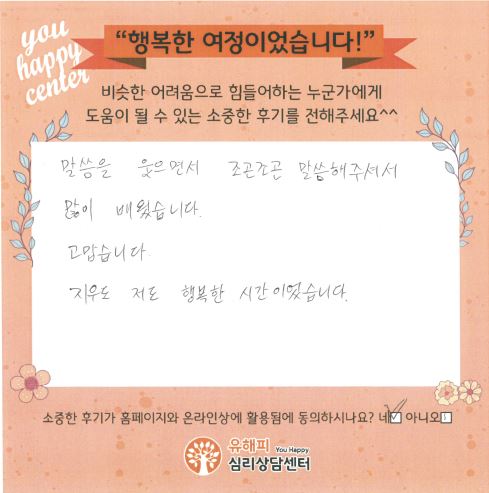 you
happy
center
“행복한 여정이었습니다!”
비슷한 어려움으로 힘들어하는 누군가에게
도움이 될 수 있는 소중한 후기를 전해주세요^^
말씀을 웃으면서 조곤조곤 말씀해주셔서
많이 배웠습니다.
고맙습니다
지우도 저도 행복한 시간이었습니다.
소중한 후기가 홈페이지와 온라인상에 활용됨에 동의하시나요? 네☑ 아니오□
유해피 You Happy
심리상담센터